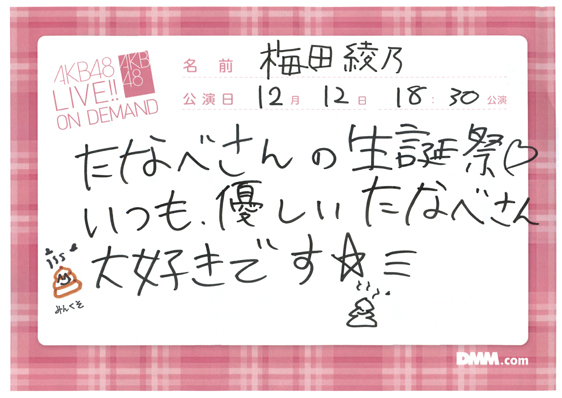 AKB48
LIVE!!
ON DEMAND
AKB
48
名前 梅田綾乃
公演日 12月 12日 18:30公演
たなべさんの生誕祭♡
いつも、優しいたなべさん
大好きです☆
みんくそ
DMM.com